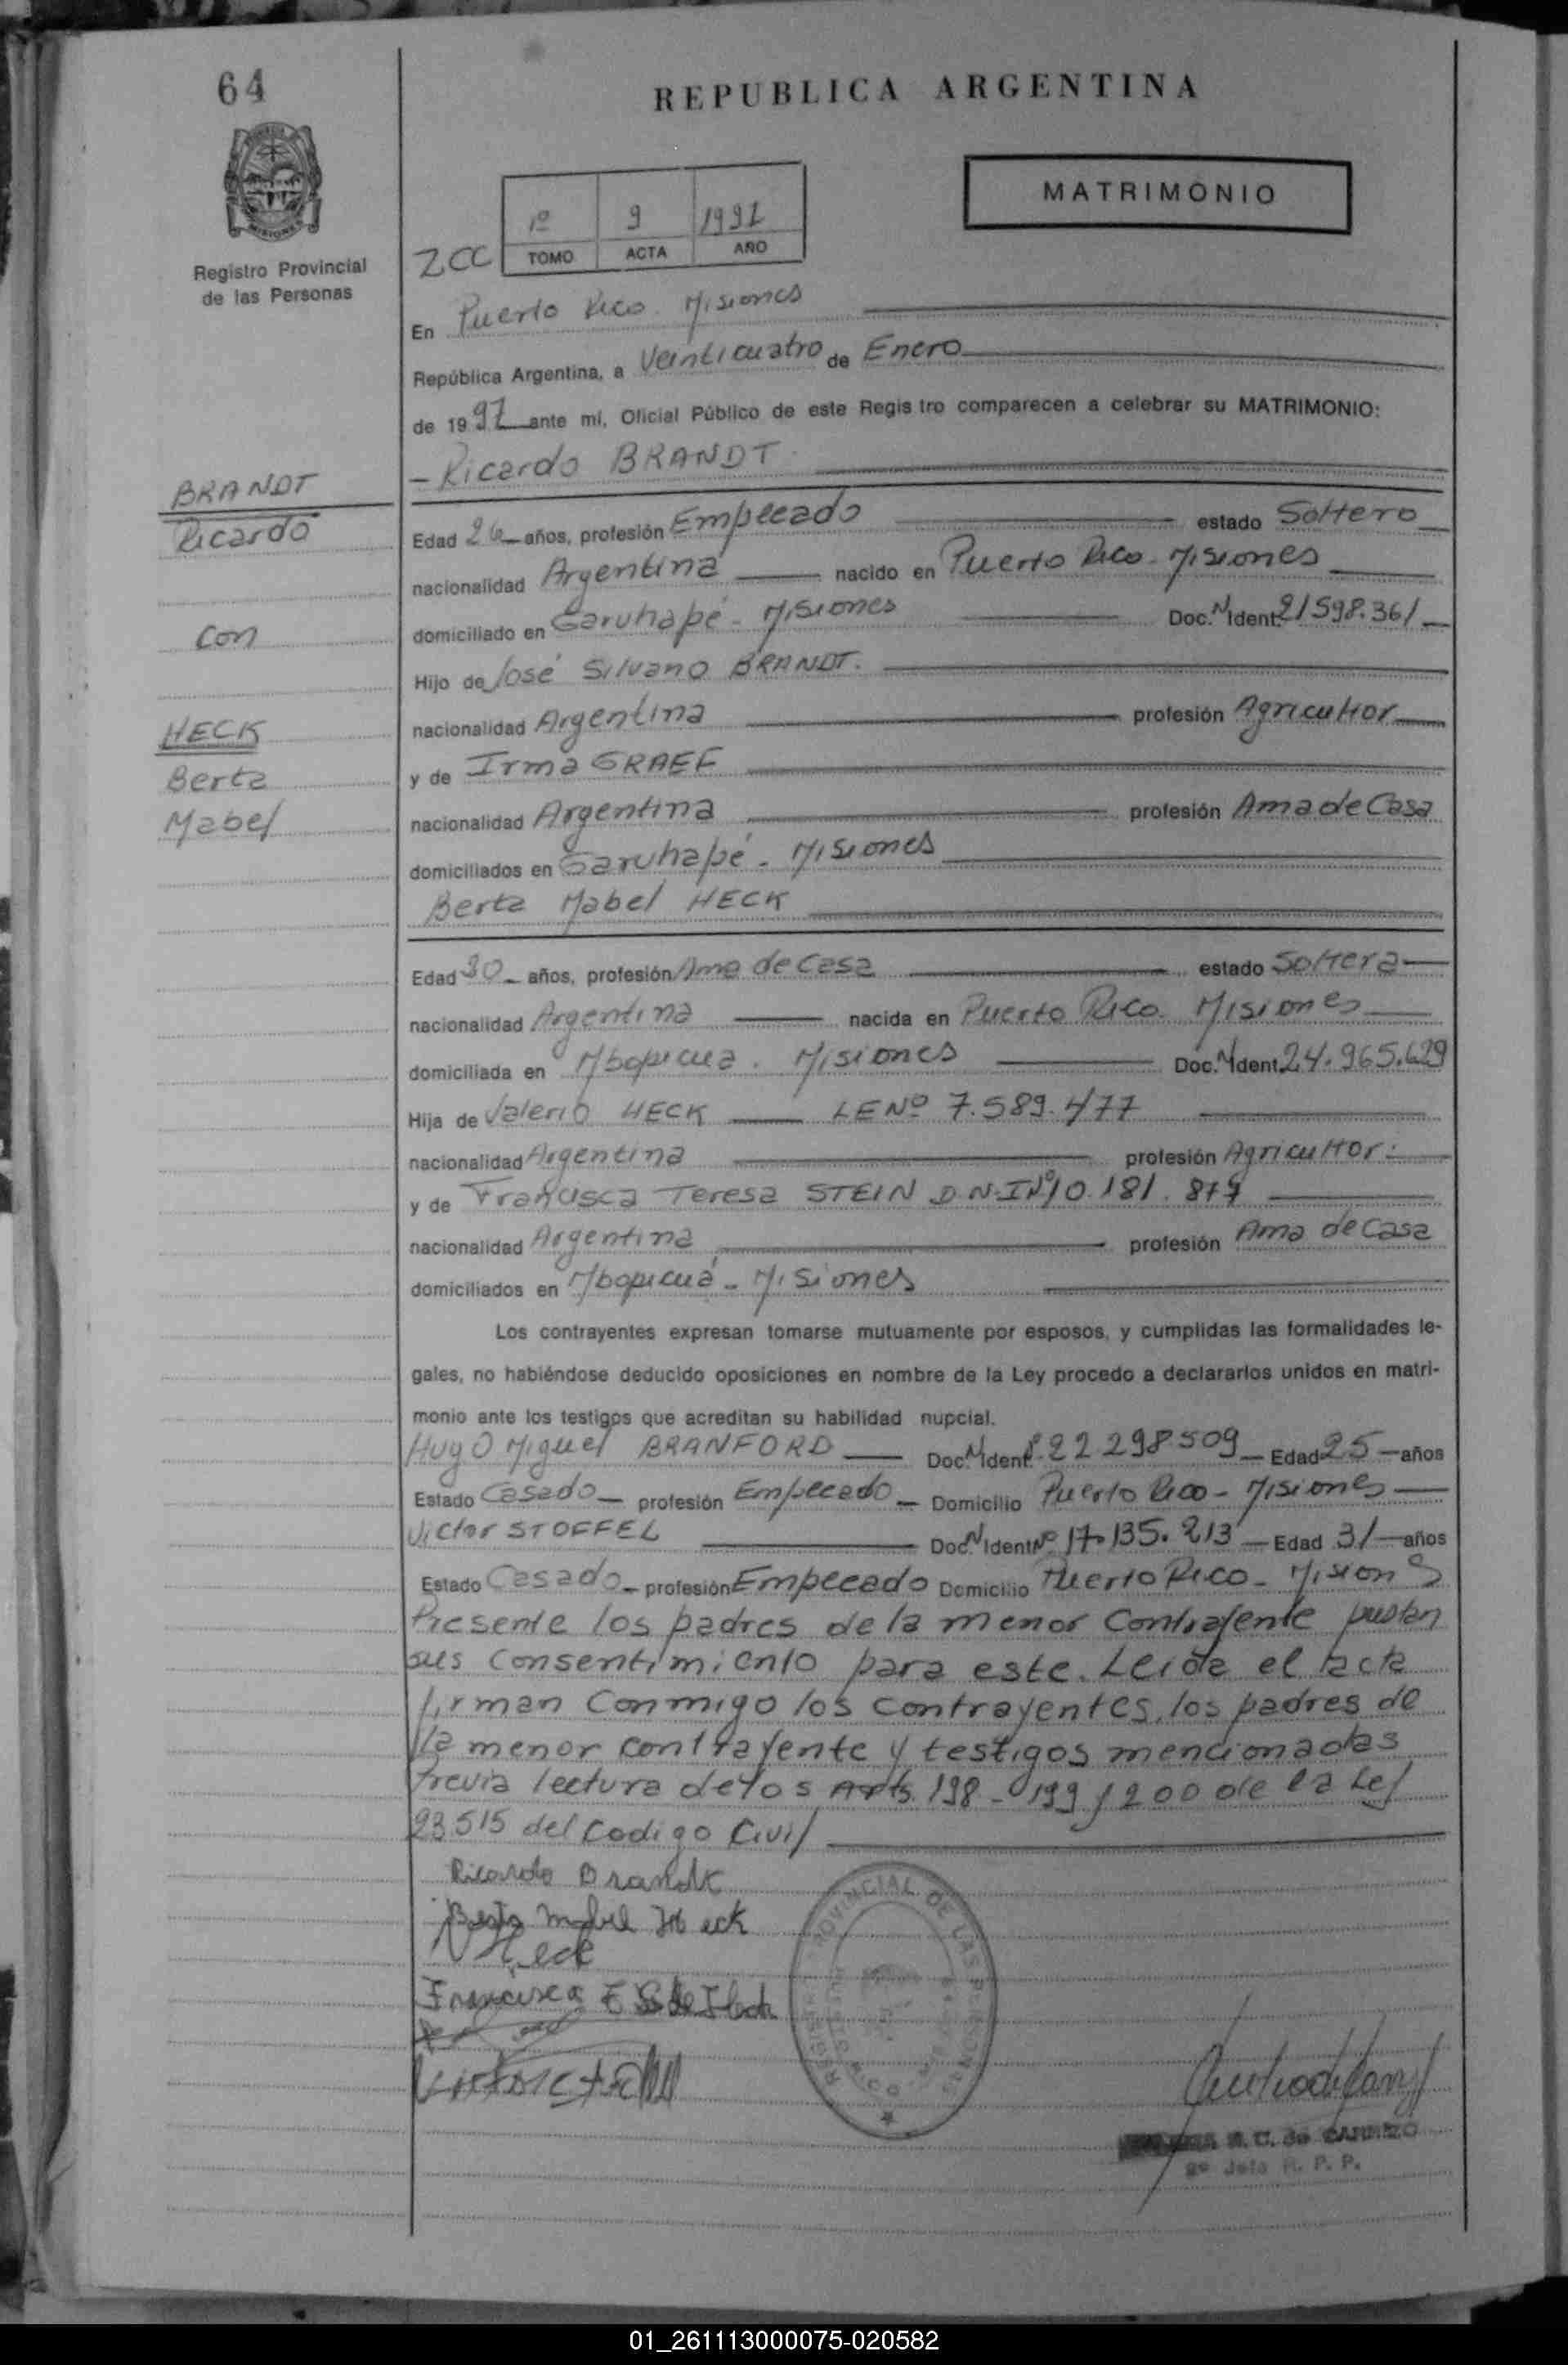 64
REPUBLICA ARGENTINA
MATRIMONIO
1º 9 1997
TOMO ACTA AÑO
ZCC
MISIONES
Registro Provincial
de las Personas
En Puerto Rico. Misiones
República Argentina, a Veinticuatro de Enero
de 1997 ante mí, Oficial Público de este Registro comparecen a celebrar su MATRIMONIO:
- Ricardo BRANDT
BRANDT
Ricardo
con
HECK
Berta
Mabel
Edad 26 años, profesión Empleado estado Soltero
nacionalidad Argentina nacido en Puerto Rico - Misiones
domiciliado en Garuhapé - Misiones Doc. N Ident. 21598.361
Hijo de José Silvano BRANDT.
nacionalidad Argentina profesión Agricultor
y de Irma GRAEF
nacionalidad Argentina profesión Ama de Casa
domiciliados en Garuhapé - Misiones
Berta Mabel HECK
Edad años, profesión Ama de Casa estado Soltera
nacionalidad Argentina nacida en Puerto Rico. Misiones
domiciliada en Mbopicua. Misiones Doc. N Ident. 24.965.629
Hija de Valerio HECK LE Nº 7.589.477
nacionalidad Argentina profesión Agricultor.
y de Francisca Teresa STEIN D.N.I Nº 10.181.877
nacionalidad Argentina profesión Ama de Casa
domiciliados en Mbopicuá - Misiones
Los contrayentes expresan tomarse mutuamente por esposos, y cumplidas las formalidades le-
gales, no habiéndose deducido oposiciones en nombre de la Ley procedo a declararlos unidos en matri-
monio ante los testigos que acreditan su habilidad nupcial.
Hugo Miguel BRANFORD Doc. N Ident. 22 298509 Edad 25 años
Estado Casado profesión Empleado Domicilio Puerto Rico - Misiones
Victor STOFFEL Doc. N Ident Nº 17.135.213 Edad 31 años
Estado Casado profesión Empleado Domicilio Puerto Rico - Misiones
Presente los padres de la menor Contrayente prestan
sus consentimiento para este. Leida el acta
firman conmigo los contrayentes, los padres de
la menor contrayente y testigos mencionados
Previa lectura de los Arts. 198 - 199 y 200 de la Ley
23.515 del Codigo Civil
Ricardo Brandt
Berta Mabel Heck
V Heck
Francisca T S de Heck
REGISTRO PROVINCIAL DE LAS PERSONAS
R. C. de CARRIZO
Jefa R. P. P.
01_261113000075-020582